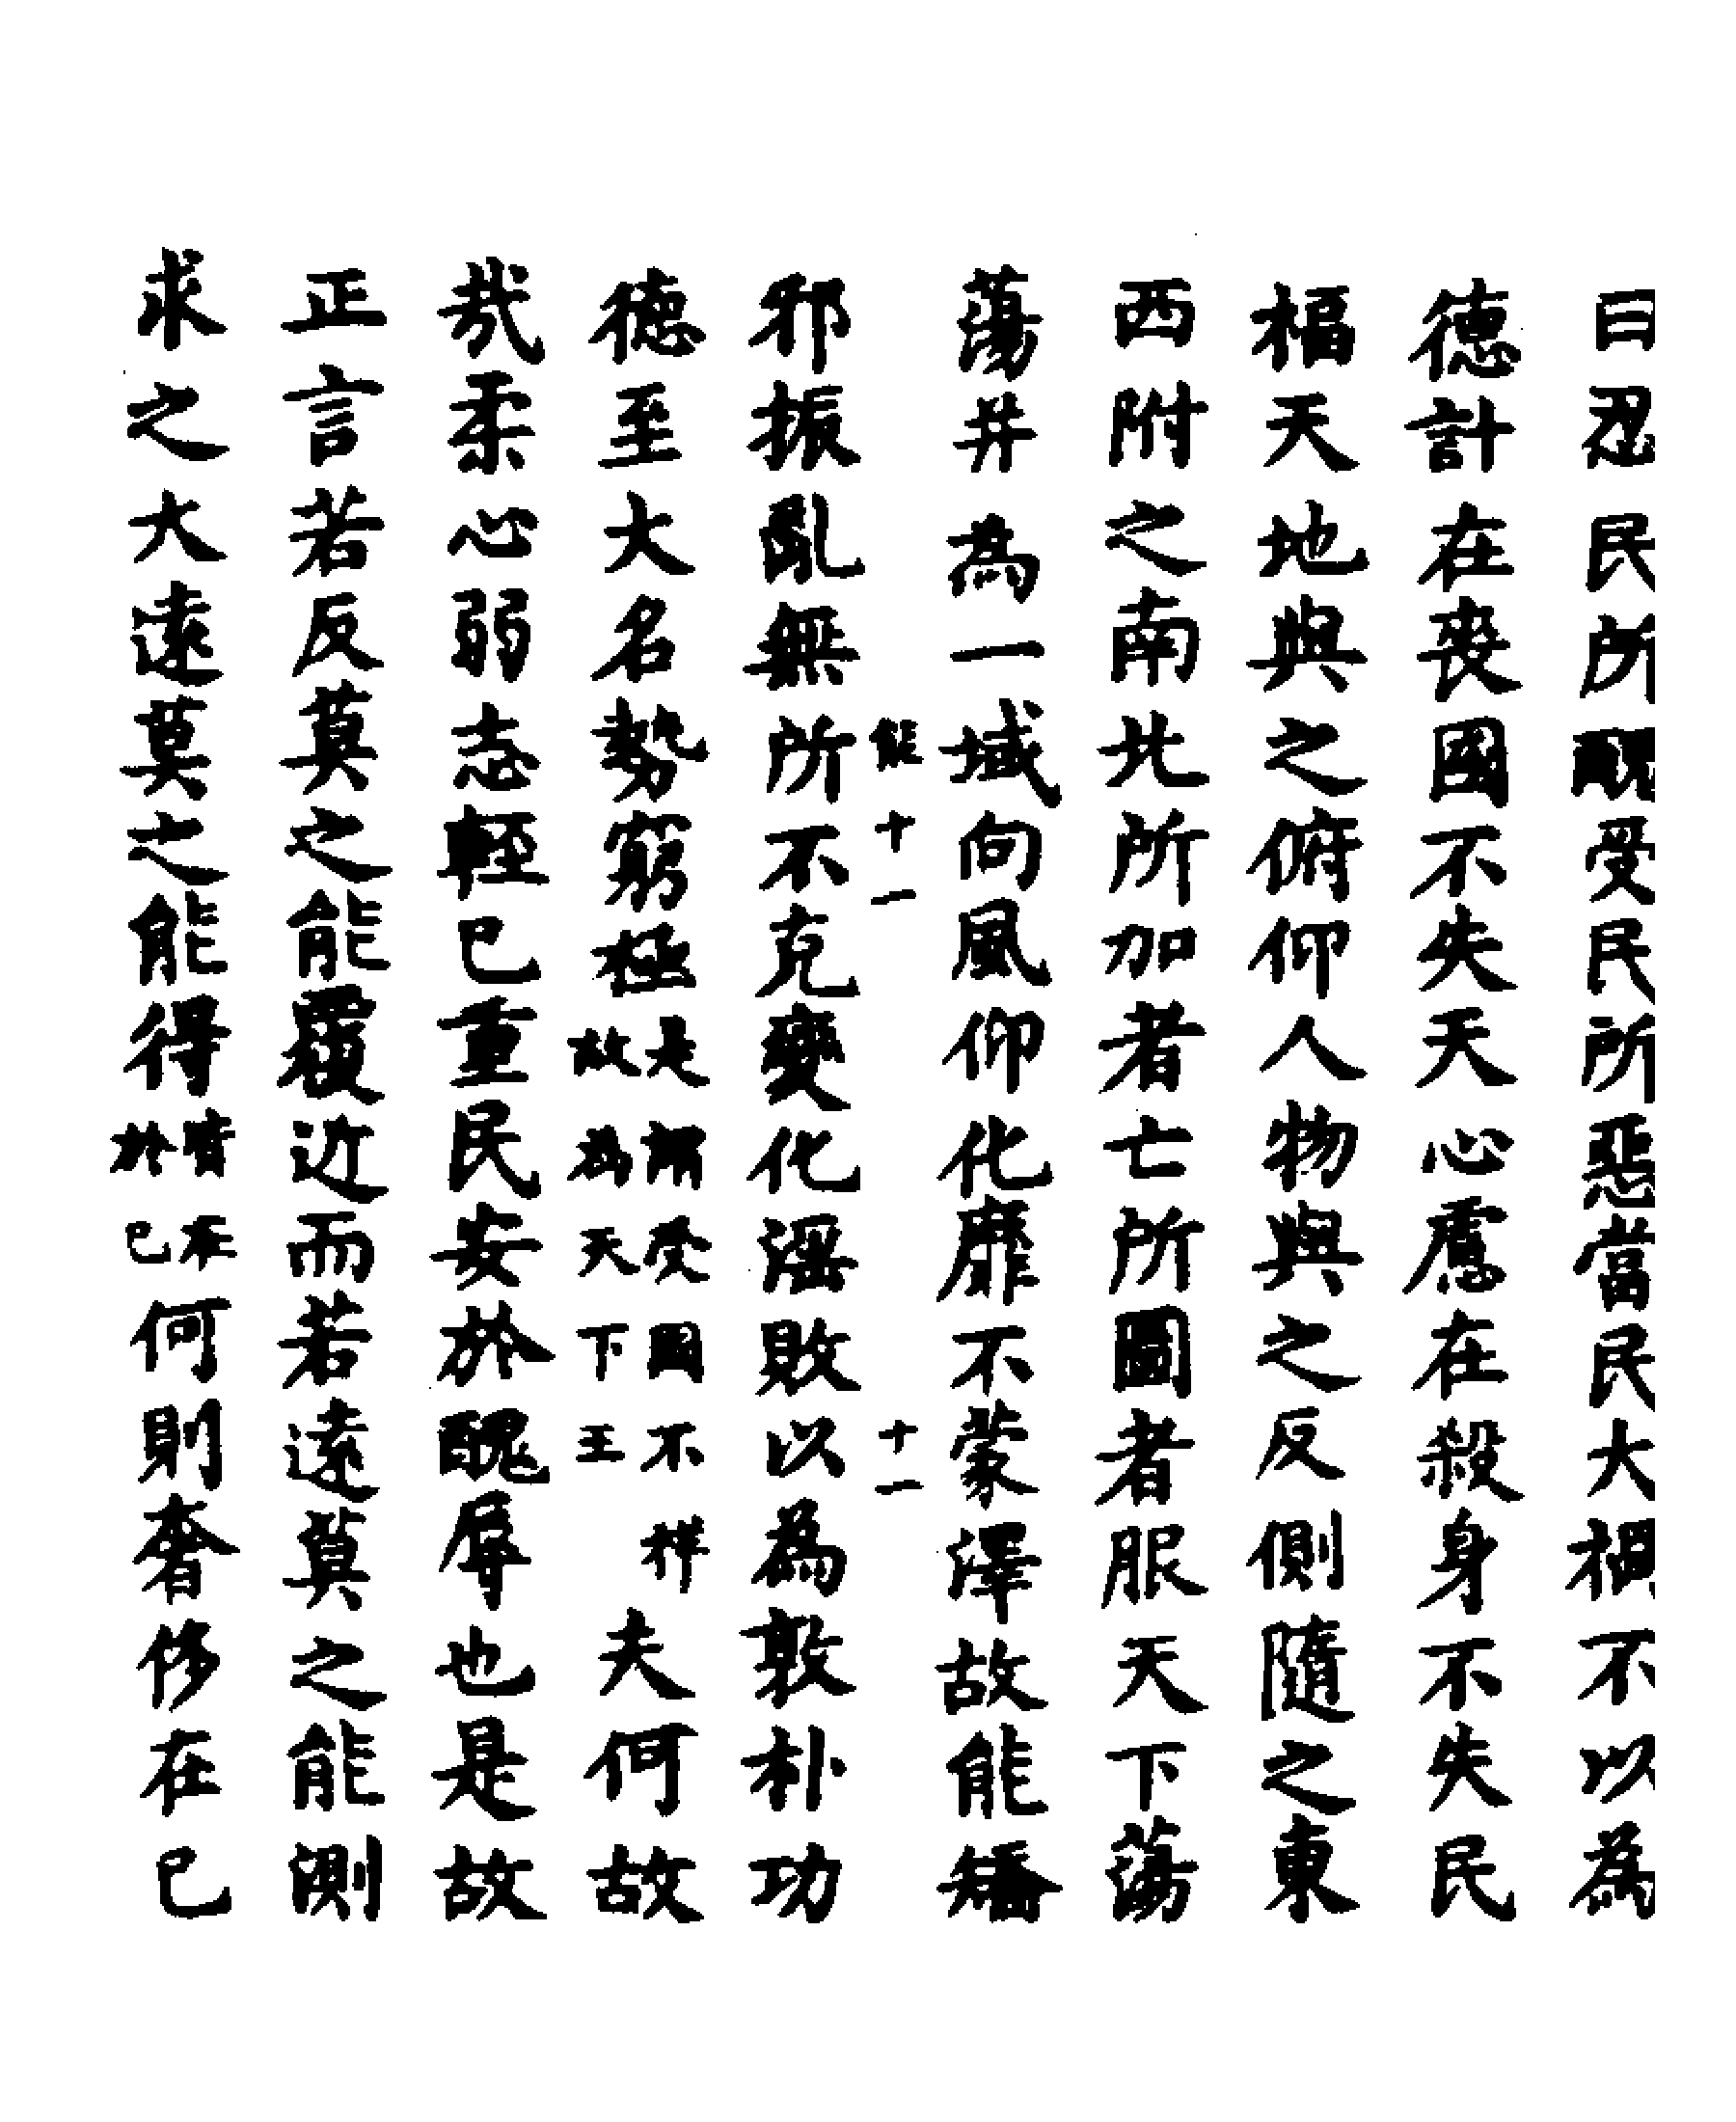 曰忍民所醜受民所惡當民大禍不以為
德計在喪國不失天心慮在殺身不失民
福天地與之俯仰人物與之反側隨之東
西附之南北所加者亡所圖者服天下蕩
蕩并為一域向風仰化靡不蒙澤故能矯
邪振亂無所不克變化滛敗以為敦朴功
能十一十一
德至大名勢窮極是謂受國不祥故為天下王夫何故
哉柔心弱志輕已重民安於醜辱也是故
正言若反莫之能覆近而若遠莫之能測
求之大遠莫之能得本於已何則奢侈在已